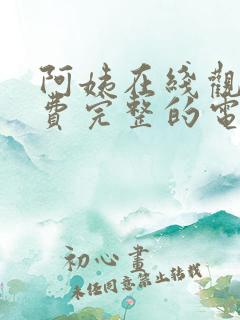 阿姨在线觀
費完整的電
初心畫
未经同意禁止转载